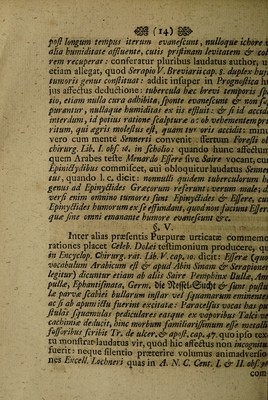 (14)
post longum tempus iterum evanescunt, nulloque ichore
alia humiditate affluente, cutis pristinam levitatem & co
rem recuperat: conferatur pluribus laudatus author, u
etiam allegat, quod Serapio V. Breviarii cap. 8. duplex huj
tumoris genus constituat: addit insuper in Prognostica h
jus affectus deductione: tubercula hæc brevi temporis sp
tio, etiam nulla cura adhibita, sponte evanescunt & non
purantur, nullaque humiditas ex iis effluit: & si id accid
interdum, id potius ratione scalpturæ ob vehementem pr
ritum, qui ægris molestus est, quam tumoris accidit: min
vero cum mente Sennerti convenit illertum Foresti ob
chirurg. Lib. I. obs. 16. in scholio: quando hunc affectum
quem Arabes teste Menardo Essere sive Saire vocant, cum
Epinyctidibus commiscet, cui obloquitur laudatus Senner
tus, quando l. c. dicit: nonnulli quidem tuberculorum h
genus ad Epinyctides Græcorum referunt, verum male, d
versi enim omnino tumores sunt Epinyctides & Essere, cu
Epinyctides humorem ex se effundant, quod non faciunt Esser
quæ sine omni emanante humore evanescunt &c.
§. V.
Inter alias præsentis Purpuræ urticatæ commemo
rationes placet Celeb. Dolæi testimonium producere, qu
in Encyclop. Chirurg. rat. Lib. V. cap. 10. dicit: Esseræ (quo
vocabulum Arabicum est & apud Albin Sinam & Serapionem
legitur) dicuntur etiam ab aliis Saire Pemphinæ Bullæ, Am
pullæ, Ephantismata, Germ. die Nessel-Sucht & sunt pustu
læ parvæ scabiei bullarum instar vel squamarum eminentes
ac si ab apum ictu fuerint excitatæ: Paracelsus vocat has pu
stulas squamulas pediculares easque ex vaporibus Talci ve
cachimiæ deducit, hinc morbum familiarissimum esse metalli
fussoribus scribit Tr. de ulcer. & apost. cap. 47. quo ipso tex
tu monstrat laudatus vir, quod hic affectus non incognitu
fuerit: neque silentio præterire volumus animadversio
nes Excell. Lochneri quas in A. N. C. Cent. I. & II. obs.
com